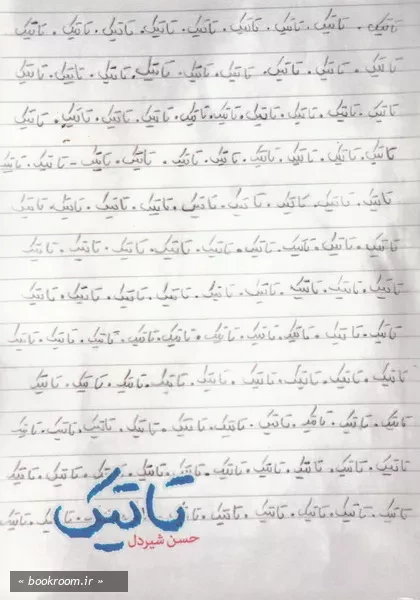 تاتیک . تاتیک . تاتیک . تاتیک . تاتیک . تاتیک . تاتیک . تاتیک . تاتیک
تاتیک . تاتیک . تاتیک . تاتیک . تاتیک . تاتیک . تاتیک . تاتیک . تاتیک
تاتیک . تاتیک . تاتیک . تاتیک . تاتیک . تاتیک . تاتیک . تاتیک . تاتیک . تاتیک
تاتیک . تاتیک . تاتیک . تاتیک . تاتیک . تاتیک . تاتیک . تاتیک - تاتیک . تاتیک
تاتیک . تاتیک . تاتیک . تاتیک . تاتیک . تاتیک . تاتیک . تاتیک . تاتیک
تاتیک . تاتیک . تاتیک . تاتیک . تاتیک . تاتیک . تاتیک . تاتیک . تاتیک
تاتیک . تاتیک . تاتیک . تاتیک . تاتیک . تاتیک . تاتیک . تاتیک . تاتیک
تاتیک . تاتیک . تاتیک . تاتیک . تاتیک . تاتیک . تاتیک . تاتیک . تاتیک . تاتیک
تاتیک . تاتیک . تاتیک . تاتیک . تاتیک . تاتیک . تاتیک . تاتیک . تاتیک
تاتیک . تاتیک . تاتیک . تاتیک . تاتیک . تاتیک . تاتیک . تاتیک . تاتیک . تاتیک
تاتیک . تاتیک . تاتیک . تاتیک . تاتیک . تاتیک . تاتیک . تاتیک . تاتیک . تاتیک
تاتیک . تاتیک . تاتیک . تاتیک . تاتیک . تاتیک . تاتیک
تاتیک
حسن شیردل
« bookroom.ir »